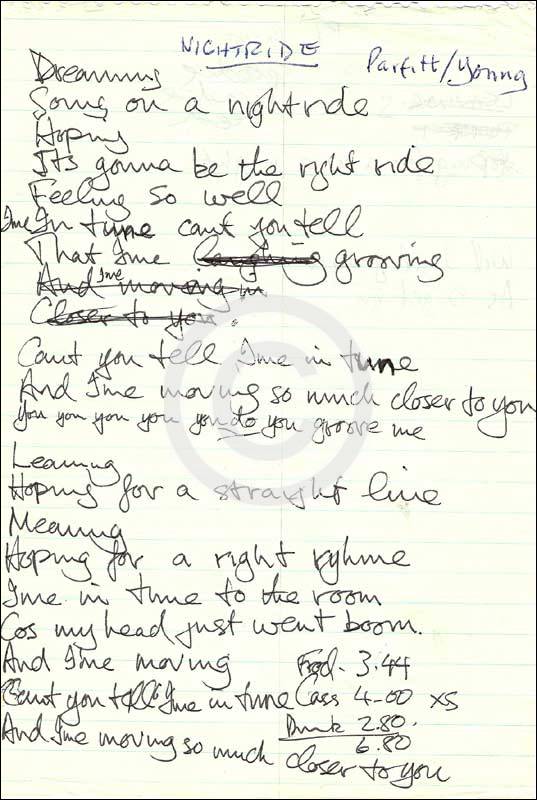 NIGHTRIDE
Parfitt/Young
Dreaming
Going on a nightride
Hoping
Its gonna be the right ride
Feeling so well
Ime In tune cant you tell
That Ime laughing grooving
And Ime moving in
Closer to you.
Cant you tell Ime in tune
And Ime moving so much closer to you
You you you you you do you groove me
Leaning
Hoping for a straight line
Meaning
Hoping for a right ryhme
Ime in tune to the room
Cos my head just went boom.
And Ime moving
Cant you tell Ime in tune
And Ime moving so much closer to you
3.44
4-00 x5
Drink 2.80.
6.80
©